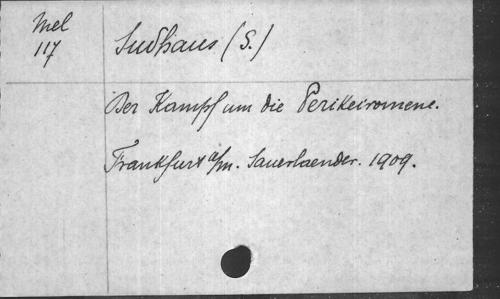 Mel
117
Sudhaus (S.)
Der Kampf um die Perikeiromene.
Frankfurt a/m. Sauerlaender. 1909.